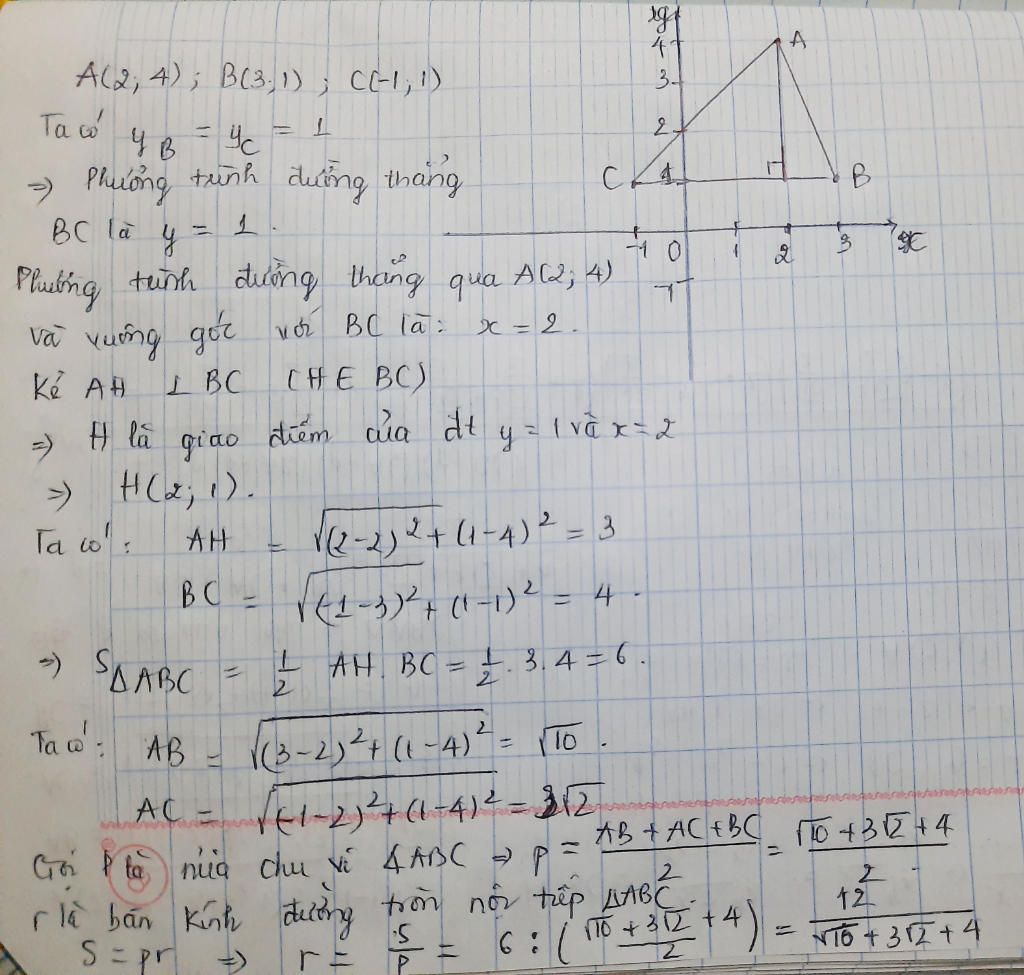 A(2; 4); B(3; 1); C(-1; 1)
Ta có y_B = y_C = 1
=> Phương trình đường thẳng
BC là y = 1.
Phương trình đường thẳng qua A(2; 4)
và vuông góc với BC là: x = 2.
Kẻ AH ⊥ BC (H ∈ BC)
=> H là giao điểm của đt y = 1 và x = 2
=> H(2; 1).
Ta có: AH = √((2-2)² + (1-4)²) = 3
BC = √((-1-3)² + (1-1)²) = 4.
=> S_ΔABC = 1/2 AH. BC = 1/2 . 3. 4 = 6.
Ta có: AB = √((3-2)² + (1-4)²) = √10.
AC = √((-1-2)² + (1-4)²) = 3√2
Gọi P là nửa chu vi ΔABC => p = (AB + AC + BC)/2 = (√10 + 3√2 + 4)/2.
r là bán kính đường tròn nội tiếp ΔABC.
S = pr => r = S/p = 6 : ((√10 + 3√2 + 4)/2) = 12/(√10 + 3√2 + 4)
y
4 A
3
2
C 1 B
-1 0 1 2 3 x
-1